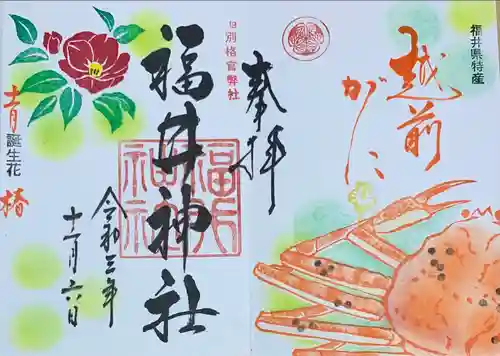 福井県特産
越前
がに
奉拝
旧別格官弊社
福井神社
福井
神社
令和三年
十一月六日
十一月
誕生花
椿